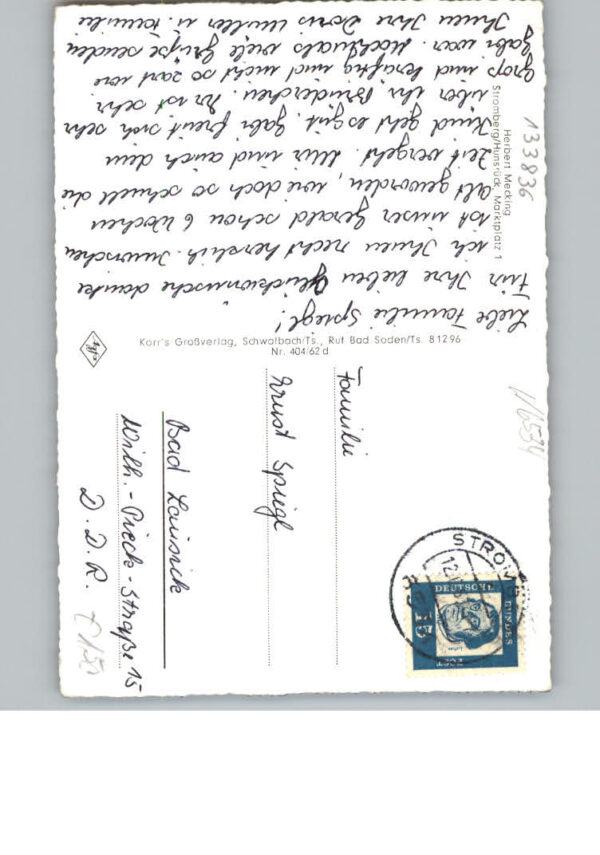 Liebe Familie Spiegl!
Für Ihre lieben Glückwünsche danke
ich Ihnen recht herzlich. Inzwischen
ist unser Gerald schon 6 Wochen
alt geworden, wie doch so schnell die
Zeit vergeht. Mir und auch dem
Kind geht es gut. Gabi freut sich sehr
über ihr Brüderchen. Er ist sehr
groß und kräftig und nicht so zart wie
Gabi war. Nochmals viele Grüße senden
Ihnen Ihre Doris Müller u. Familie
Herbert Mecking
Stromberg/Hunsrück, Marktplatz 1
133836
Korr's Großverlag, Schwalbach/Ts., Ruf Bad Soden/Ts. 81296
Nr. 404/62 d
Agfa
Familie
Ernst Spiegl
Bad Lausick
Wilh.-Pieck-Straße 15
D.D.R.
STROM
DEUTSCHE
BUNDES
POST
15
Luther